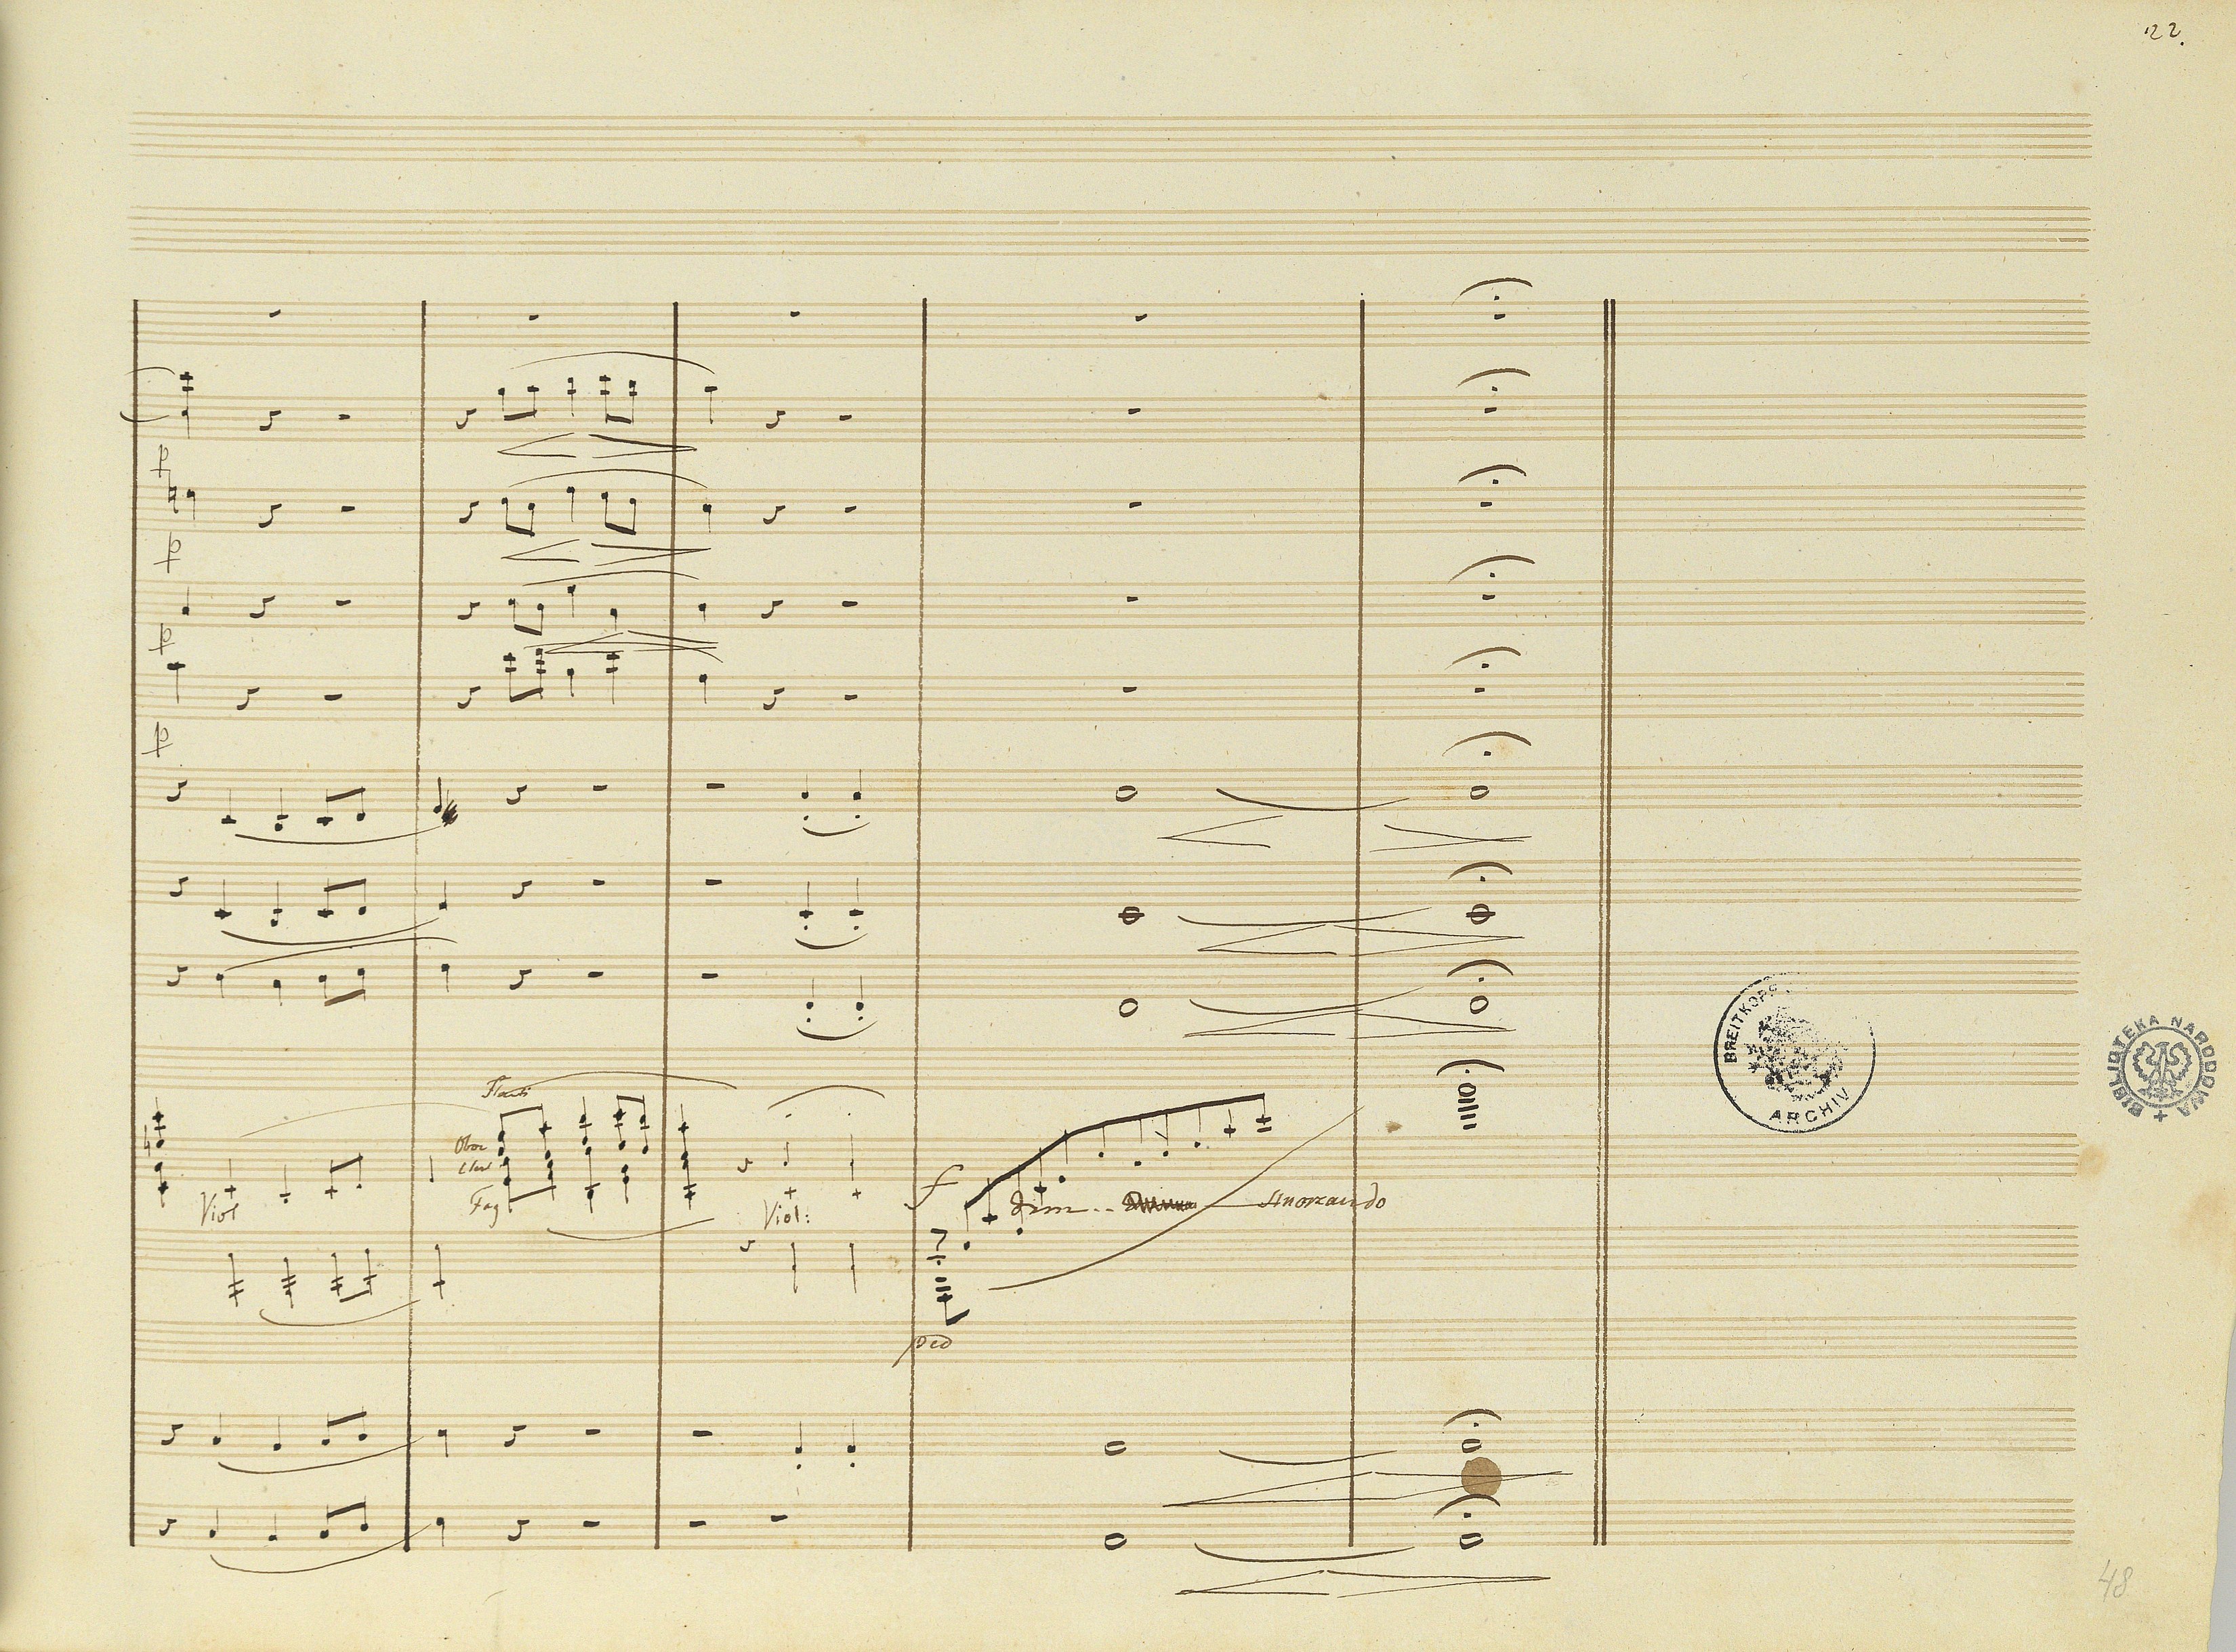 22.
p
p
p
p
Flauti
Oboe
Clar
Fag
Viol
Viol:
f
dim - -
smorzando
ped
BREITKOPF
ARCHIV
BIBLIOTEKA NARODOWA
48